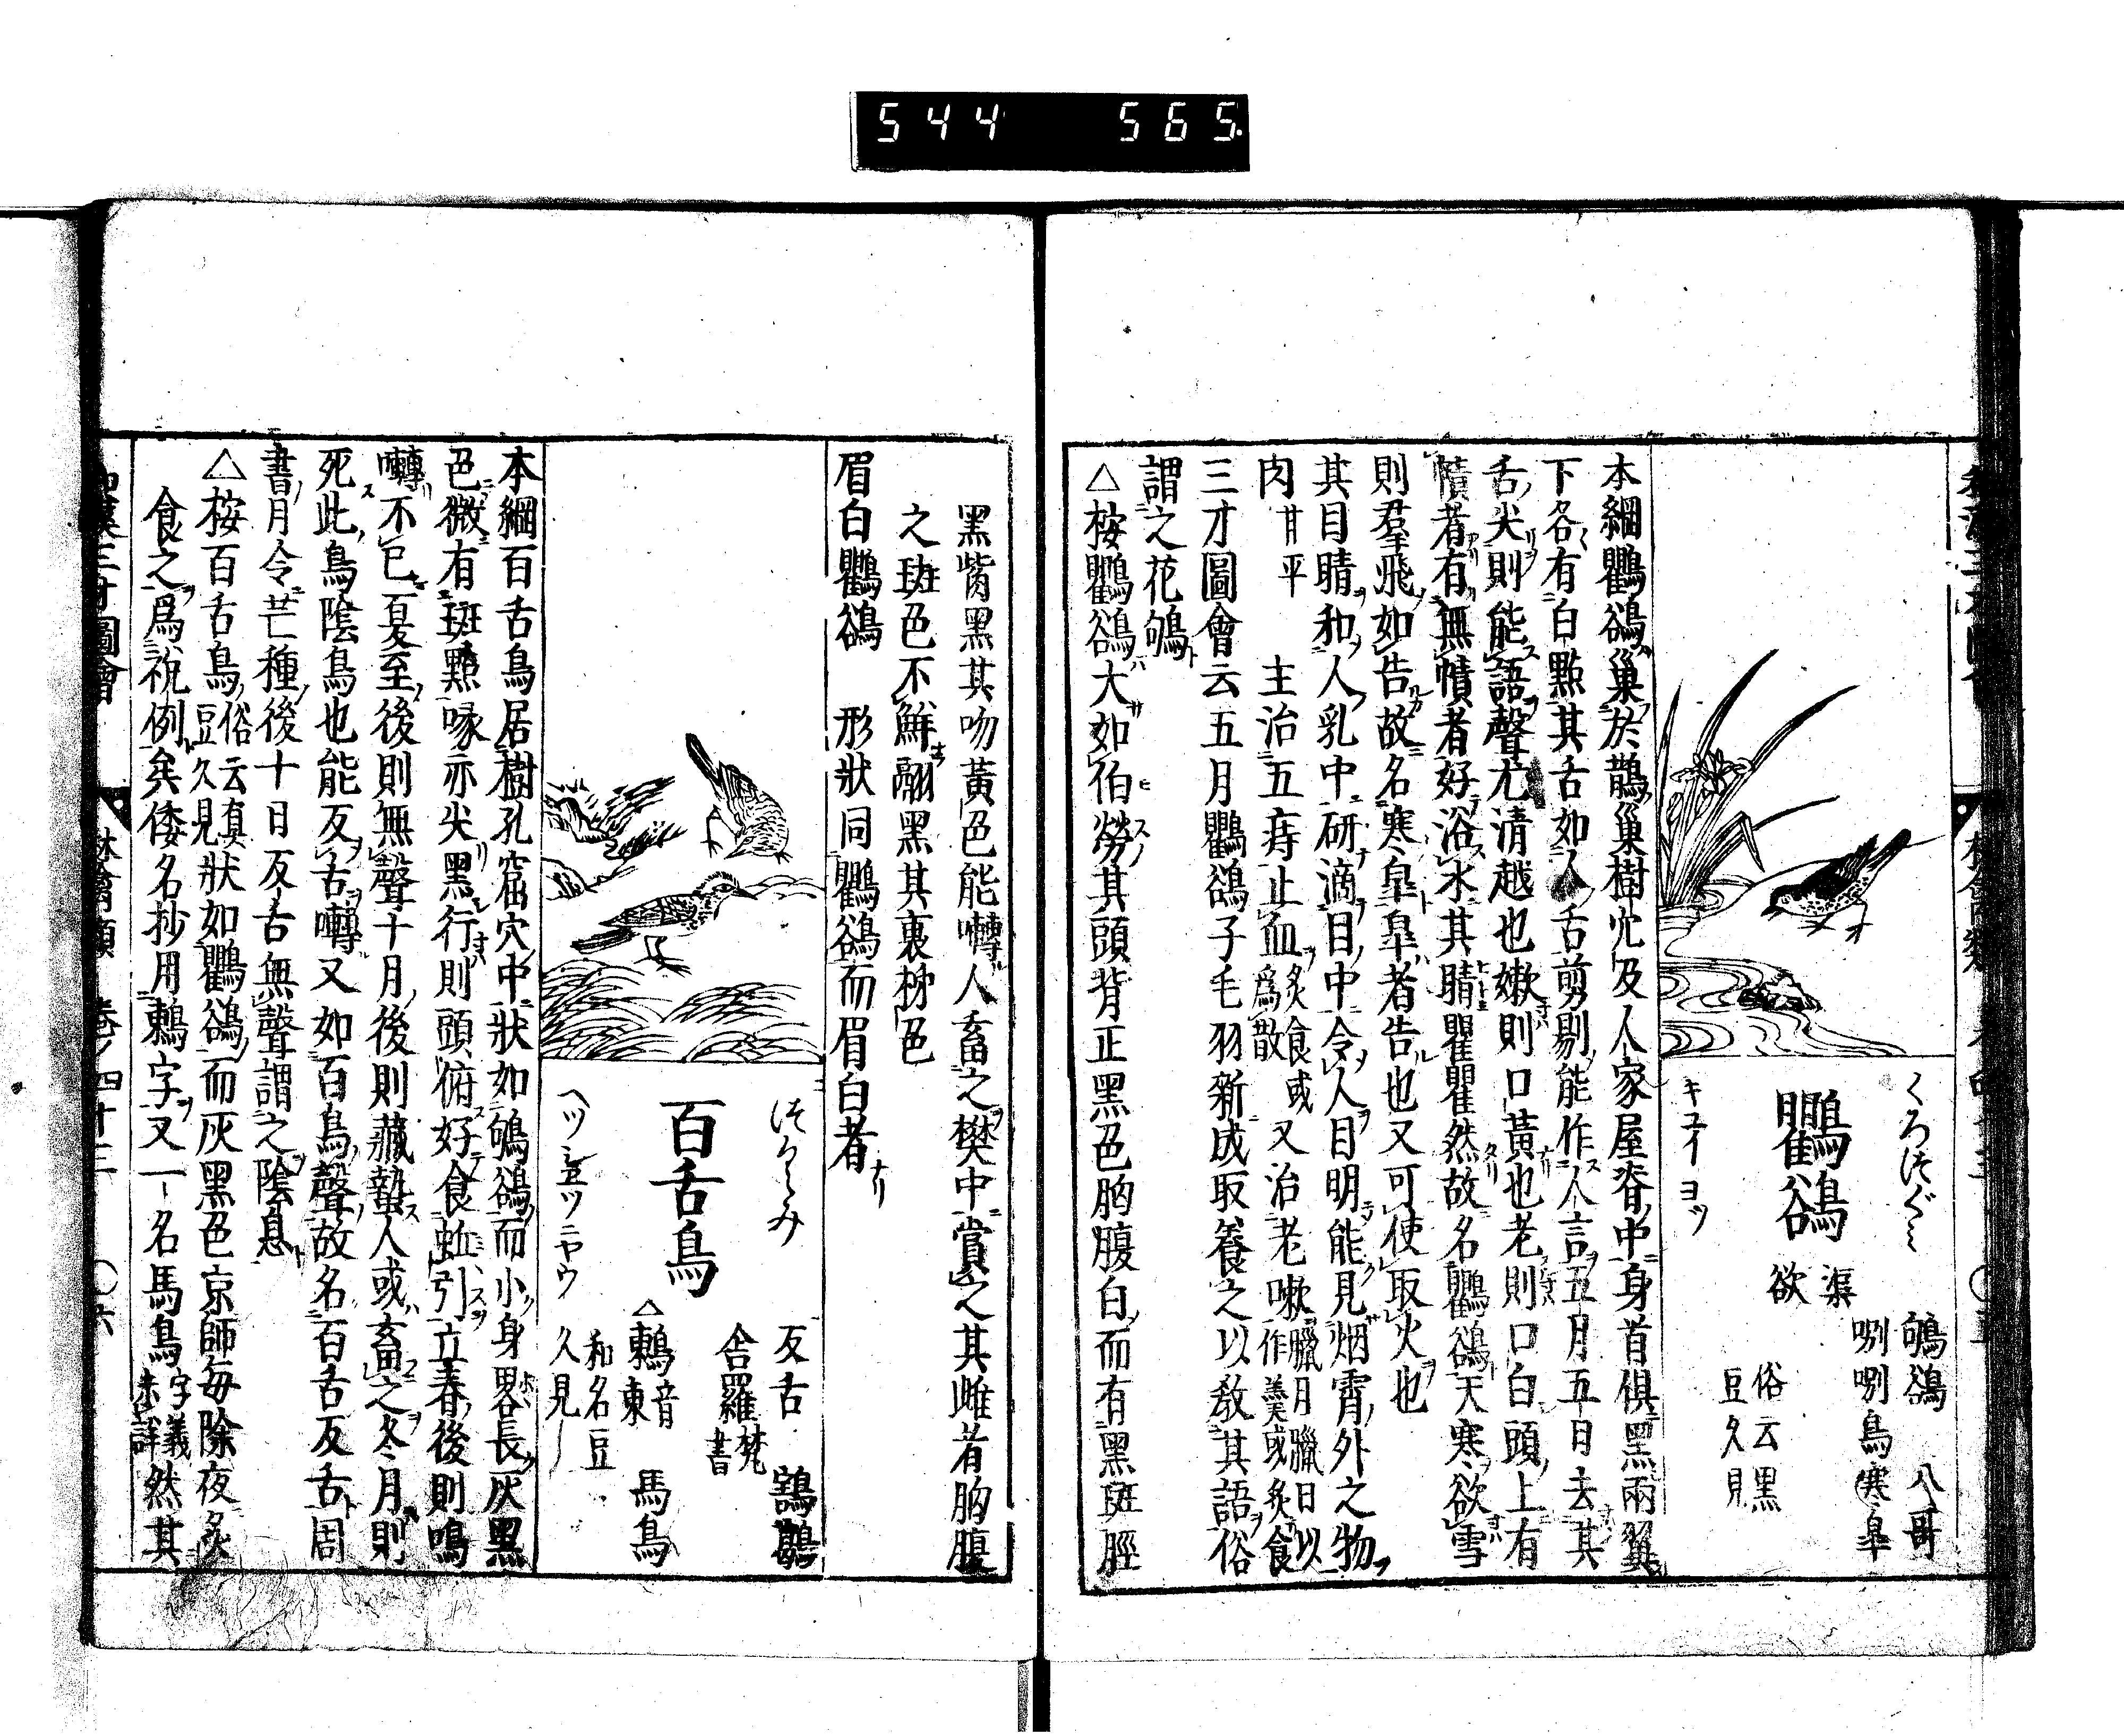 544 565
くろつぐミ
鸜鵒
渠欲
キユイ ヨッ
鴝鵒 八哥
唎唎鳥 寒皐
俗云黒
豆久見
本綱鸜鵒巢於鵲巢樹穴及人家屋脊中身首俱黑兩翼
下各有白點其舌如人舌剪剔能作人言五月五日去其
舌尖則能語聲尤清越也嫩則口黃也老則口白頭上有
幘者有無幘者好浴水其睛瞿瞿然故名鸜鵒天寒欲雪
則羣飛如告故名寒皐皐者告也又可使取火也
其目睛和人乳中研滴目中令人目明能見烟霄外之物
肉甘平 主治五痔止血炙食或爲散又治老嗽臘月臘日以作羹或炙食
三才圖會云五月鸜鵒子毛羽新成取養之以敎其語俗
謂之花鴝
△桉鸜鵒大如伯勞其頭背正黑色胸腹白而有黑斑脛
黑觜黑其吻黃色能囀人畜之樊中賞之其雌者胸腹
之斑色不鮮翮黑其裏柹色
眉白鸜鵒 形狀同鸜鵒而眉白者
つくみ
百舌鳥
ヘツ シエツ ニヤウ
反舌
舍羅 梵書
△鶫 音東
和名豆久見
馬鳥
本綱百舌鳥居樹孔窟穴中狀如鴝鵒而小身畧長灰黑
色微有斑㸃喙亦尖黑行則頭俯好食蚯引立春後則鳴
囀不已夏至後則無聲十月後則藏蟄人或畜之冬月則
死此鳥陰鳥也能反舌囀又如百鳥聲故名百舌反舌周
書月令芒種後十日反舌無聲謂之陰息
△桉百舌鳥俗云真豆久見狀如鸜鵒而灰黑色京師每除夜炙
食之爲祝例矣倭名抄用鶫字又一名馬鳥字義未詳然其
和漢三才圖會 林禽類 卷ノ四十三 〇六